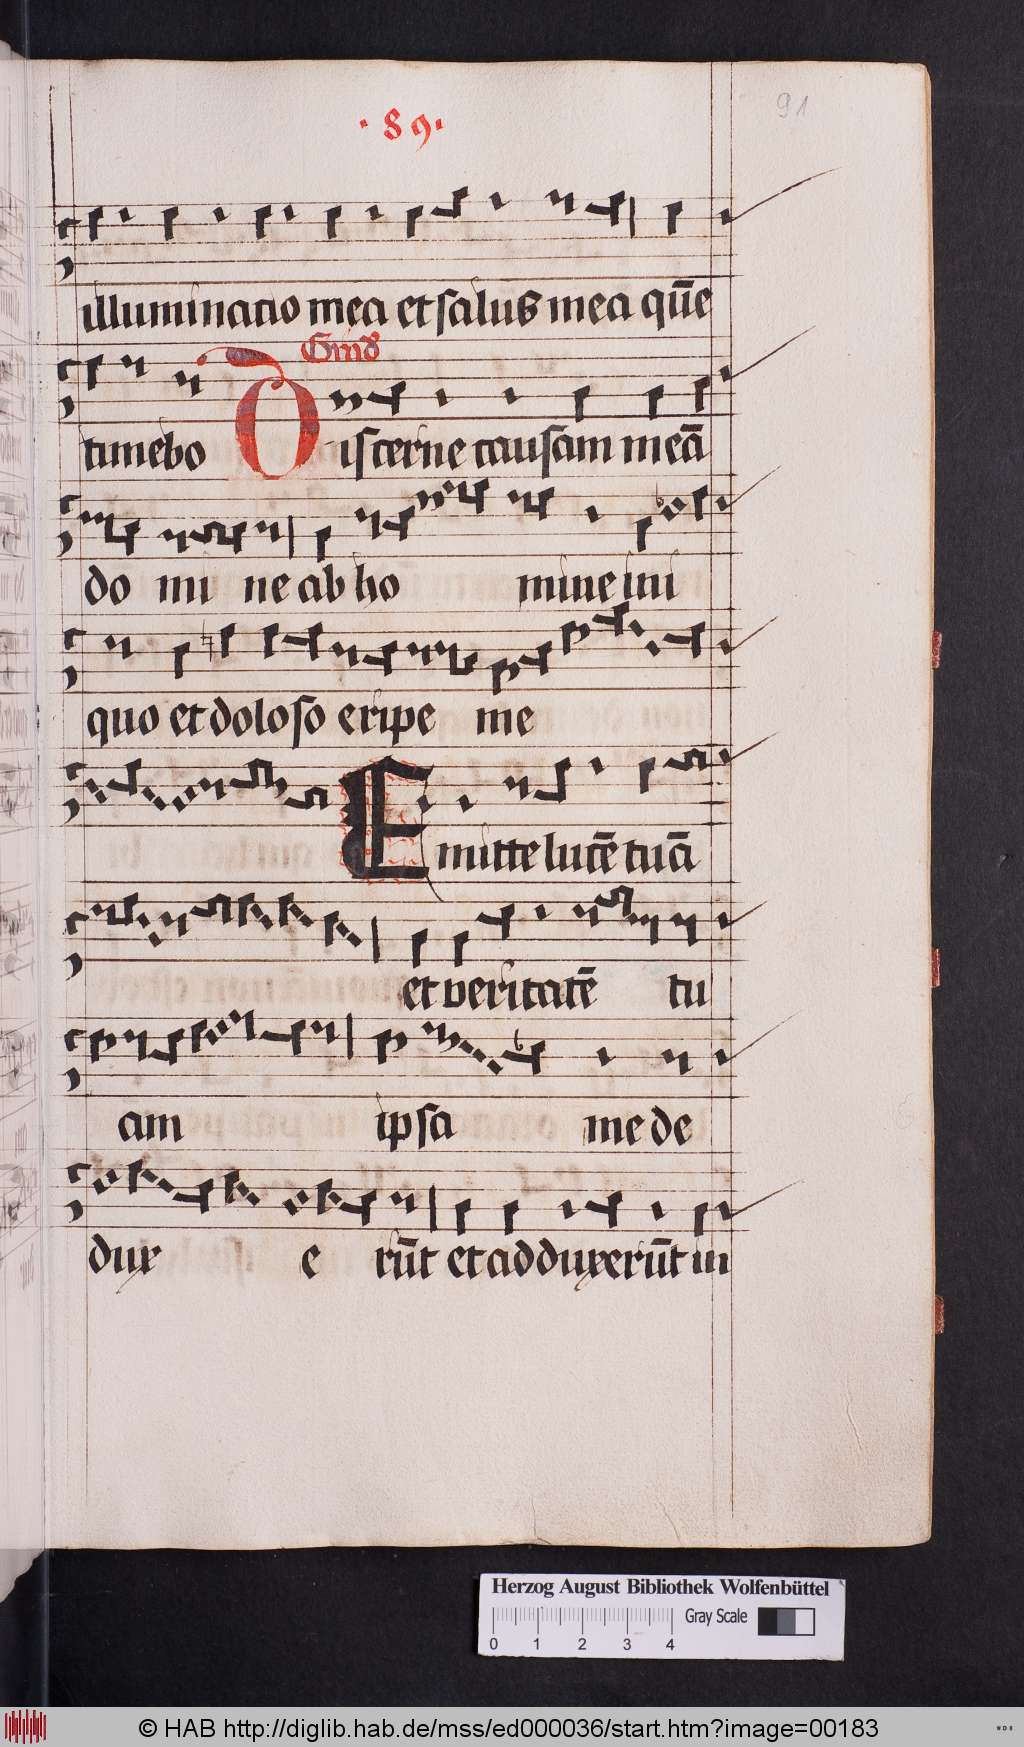 · 89 ·
91
illuminatio mea et salus mea quē
Grad
timebo Discerne causam meā
do mi ne ab ho mine ini
quo et doloso eripe me
Emitte lucē tuā
et veritatē tu
am ipsa me de
dux e rūt et adduxerūt in
Herzog August Bibliothek Wolfenbüttel
Gray Scale
0 1 2 3 4
© HAB http://diglib.hab.de/mss/ed000036/start.htm?image=00183